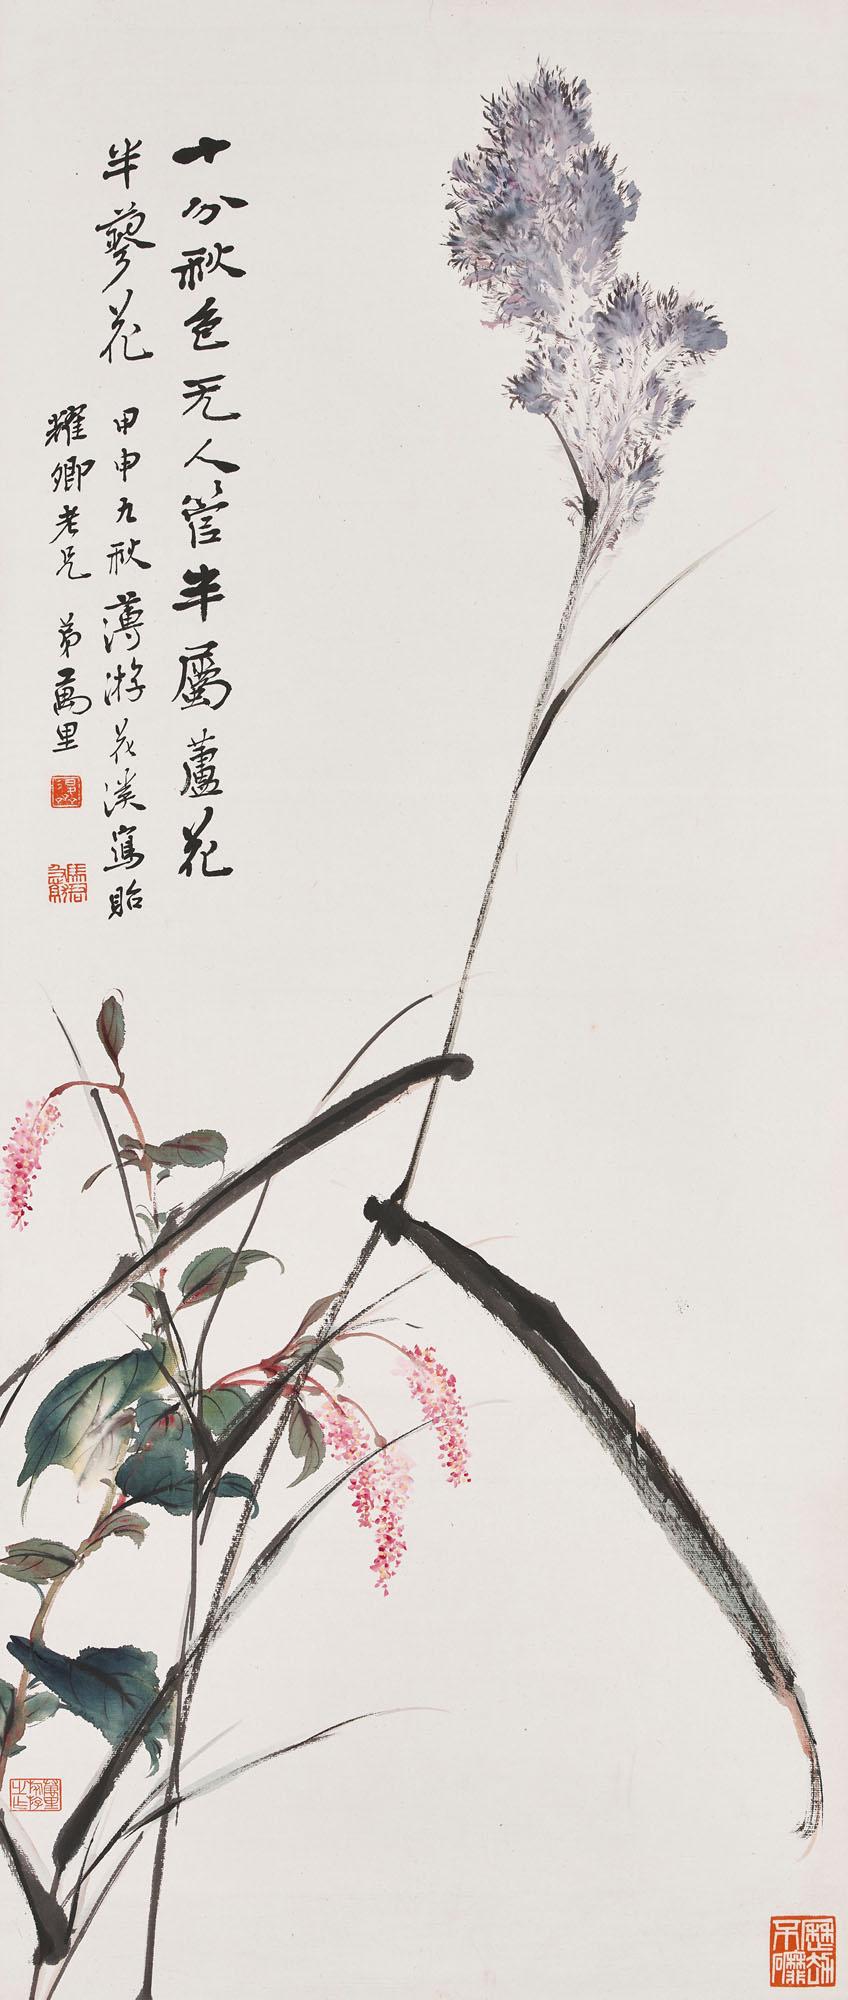 十分秋色无人管半屬蘆花
半蓼花
甲申九秋薄游花溪寫貽
耀卿老兄 弟萬里
歷劫不磨